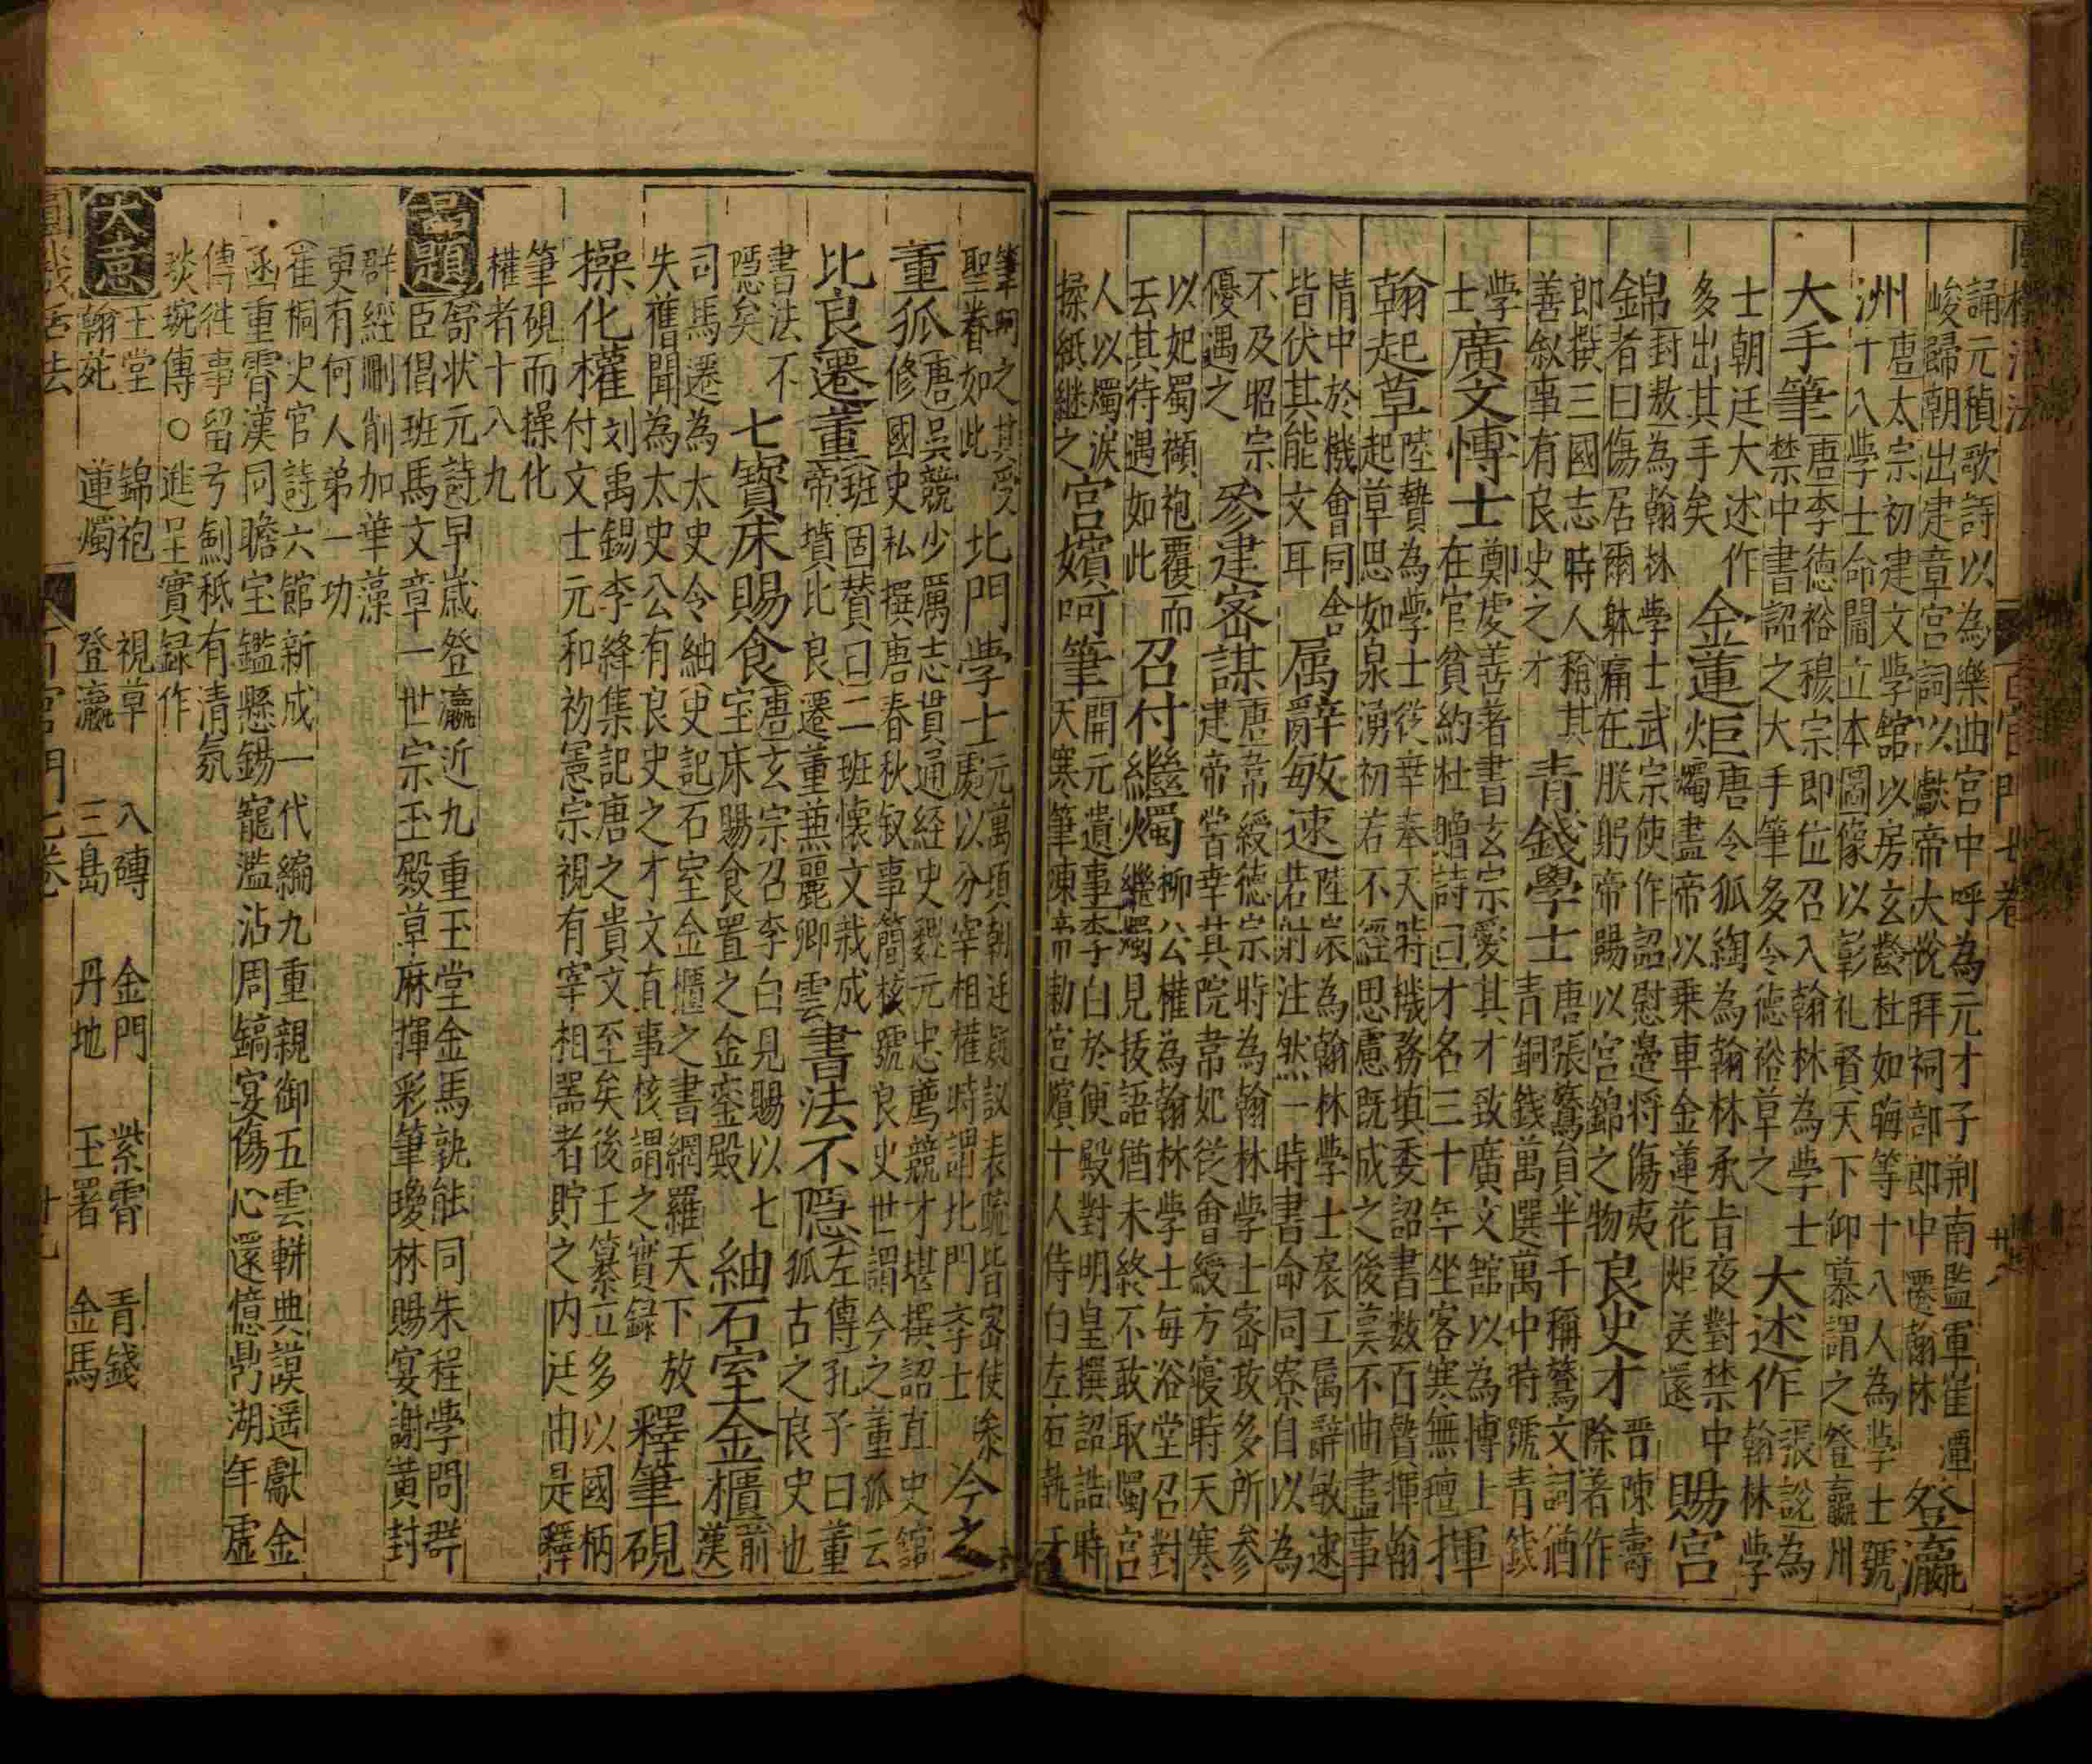 百官門七卷
誦元稹歌詩以為樂曲宮中呼為元才子荊南監軍崔潭
峻歸朝出建章宮詞以獻帝大悅拜祠部郎中遷翰林
登瀛
洲
唐太宗初建文學舘以房玄齡杜如晦等十八人為學士號
十八學士命閻立本圖像以彰礼賢天下仰慕謂之登瀛州
大手筆
唐李德裕穆宗即位召入翰林為學士
禁中書詔之大手筆多令德裕草之
大述作
張說為
翰林學
士朝廷大述作
多出其手矣
金蓮炬
唐令狐綯為翰林承旨夜對禁中
燭盡帝以乗車金蓮花炬送還
賜宮
錦
封敖為翰林學士武宗使作詔慰邉将傷夷
者曰傷居爾躰痛在朕躬帝賜以宮錦之物
良史才
晋陳壽
除著作
郎撰三國志時人稱其
善叙事有良史之才
青錢學士
唐張鷟員半千稱鷟文詞猶
青銅錢萬選萬中時號青錢
學
士
廣文博士
鄭虔善著書玄宗愛其才致廣文舘以為博士
在官貧約杜贈詩曰才名三十年坐客寒無氊
揮
翰起草
陸贄為學士從幸奉天時機務填委詔書数百贄揮翰
起草思如泉湧初若不經思慮既成之後莫不曲盡事
情中於機會同舍
皆伏其能文耳
属辭敏速
陸扆為翰林學士扆工属辭敏速
若射注然一時書命同寮自以為
不及昭宗
優遇之
參建密謀
唐韋綬德宗時為翰林學士密政多所参
建帝嘗幸其院韋妃從會綬方寢時天寒
以妃蜀襭袍覆而
去其待遇如此
召付繼燭
柳公權為翰林學士毎浴堂召對
繼燭見抜語猶未終不敢取燭宮
人以燭淚
揉紙継之
宮嬪呵筆
開元遺事李白於便殿對明皇撰詔誥時
天寒筆凍帝勅宮嬪十人侍白左右執牙
筆呵之其受
聖眷如此
北門學士
元萬頃朝廷疑議表疏皆密使条
處以分宰相權時謂北門李士
今之
董狐
唐吳競少厲志貫通経史魏元忠薦競才堪撰詔直史舘
修國史私撰唐春秋叙事簡核號良史世謂今之董狐云
比良遷董
班固賛曰二班懐文裁成
帝墳比良遷董兼麗卿雲
書法不隠
左傳孔子曰董
狐古之良史也
書法不
隠矣
七寳床賜食
唐玄宗召李白見賜以七
宝床賜食置之金鑾殿
紬石室金櫃
前
漢
司馬遷為太史令紬史記石室金櫃之書網羅天下放
失舊聞為太史公有良史之才文直事核謂之實録
釋筆硯
操化權
刘禹錫李絳集記唐之貴文至矣後王纂立多以國柄
付文士元和初憲宗視有宰相器者貯之内廷由是釋
筆硯而操化
權者十八九
品題
舒状元詩早歲登瀛近九重玉堂金馬孰能同朱程學問群
臣倡班馬文章一世宗玉殿草麻揮彩筆瓊林賜宴謝黄封
群經刪削加華藻
更有何人弟一功
崔桐史官詩六館新成一代編九重親御五雲軿典謨遥獻金
函重霄漢同瞻宝鑑懸錫寵濫沾周鎬宴傷心還憶鼎湖年虛
傳徃事留弓劍秪有清氛
琰琬傳○進呈實録作
大意
玉堂 錦袍 視草 八磚 金門 紫霄 青錢
翰苑 蓮燭 登瀛 三島 丹地 玉署 金馬